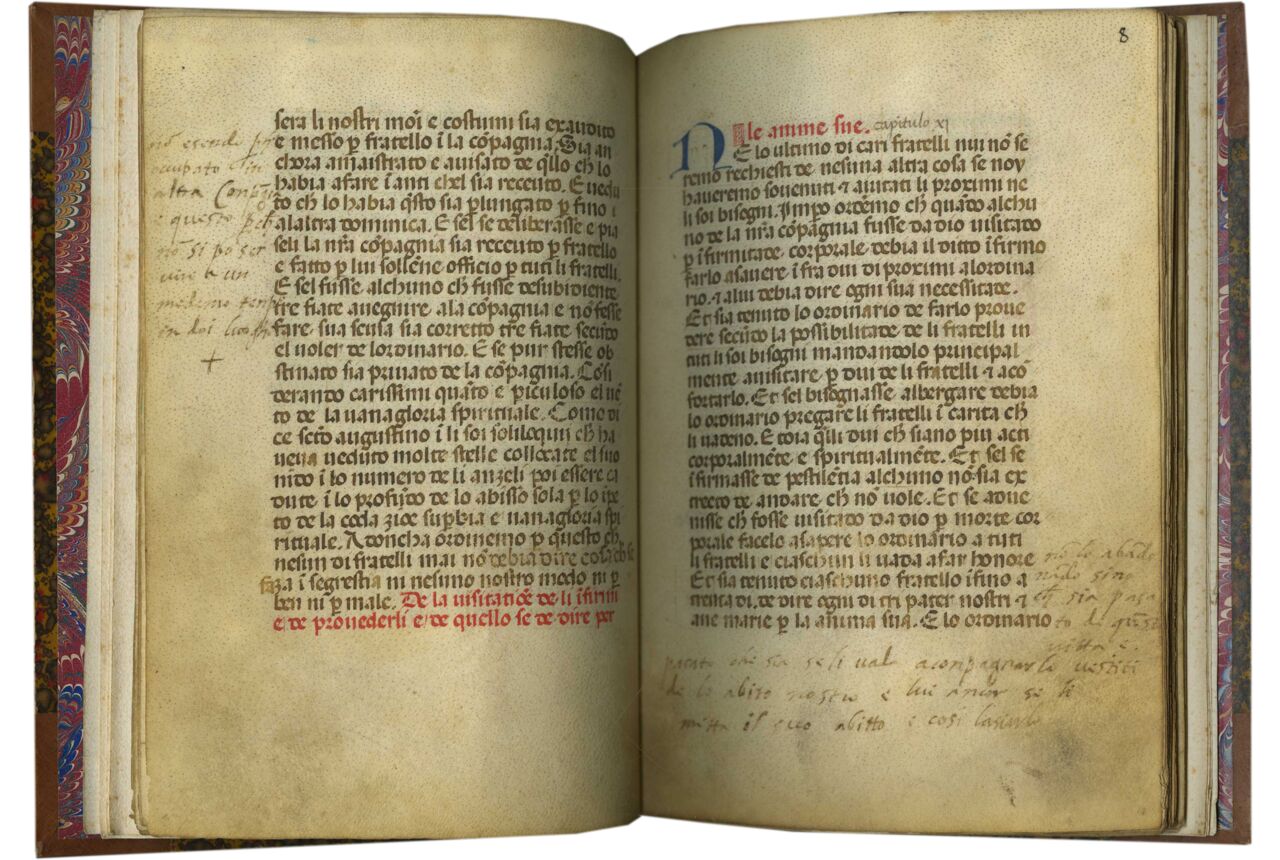 sera li nostri modi e costumi sia exaudito
e messo p̱ fratello ĩ la cõpagnia. Sia an
chora amaistrato e auisato de q̃llo ch̄ lo
habia afare ĩ anti chel sia receuto. E uedu
to ch̄ lo habia q̃sto sia p̱lungato p̱ fino i
alaltra dominica. E sel se deliberasse e pia
seli la nr̃a cõpagnia sia receuto p̱ fratello
e fatto p̱ lui sollẽne officio p̱ tuti li fratelli.
E sel fusse alchuno ch̄ fusse desubidiente
tre fiate auegnire ala cõpagnia e nõ fesse
fare sua scusa sia corretto tre fiate secũto
el uoler de lordinario. E se pur stesse ob
stinato sia priuato de la cõpagnia. Cõsi
derando carissimi quãto e p̱iculoso el uẽ
to de la uanagloria spirituale. Como di
ce sct̃o augustino ĩ li soi soliloquii ch̄ ha
ueua ueduto molte stelle collocate el suo
nido ĩ lo numero de li anzeli poi essere ca
dute ĩ lo profũdo de lo abisso sola p̱ lo ĩpe
to de la coda zioe sup̱bia e uanagloria spi
rituale. Adoncha ordinemo p̱ questo ch̄
nesun di fratelli mai nõ debia dire cosa ch̄ se
faza ĩ segrestia ni nesuno nostro modo ni p̱
ben ni p̱ male. De la uisitatiõe de li ĩfirmi
e de prouederli e de quello se de dire per
nõ esend pre
ocupato in
altra Conpag
e questo p̱ch
nõ si po ser
uire a un
medemo tenp
in doi luoghi
+
8
le anime sue. capitulo xj
NE lo ultimo di cari fratelli nui nõ se
remo rechiesti de nesuna altra cosa se noy
haueremo souenuti ⁊ aiutati li proximi ne
li soi bisogni. Imp̱o ordẽmo ch̄ quãdo alchu
no de la nr̃a cõpagnia fusse da dio uisitado
p̱ ĩfirmitade corporale debia il ditto ĩfirmo
farlo asauere ĩfra dui di proximi alordina
rio. ⁊ alui debia dire ogni sua necessitate.
Et sia tenuto lo ordinario de farlo proue
dere secũto la possibilitate de li fratelli in
tuti li soi bisogni mandandolo principal
mente auisitare p̱ dui de li fratelli ⁊ acõ
fortarlo. Et sel bisognasse albergare debia
lo ordinario pregare li fratelli ĩ carita ch̄
li uadeno. E toia q̃li dui ch̄ siano piu acti
corporalmẽte e spiritualmẽte. Et sel se
ĩfirmasse de pestilẽtia alchuno nõ sia ex
trecto de andare ch̄ nõ uole. Et se adue
nisse ch̄ fosse uisitato da dio p̱ morte cor
porale facelo asapere lo ordinario a tuti
li fratelli e ciaschun li uada afar honore
Et sia tenuto ciaschuno fratello ĩfino a
trenta di. de dire ogni di tri pater nostri ⁊
aue marie p̱ la anima sua. E lo ordinario
nõ lo abãdo
nãdo sino
ch̄ sia pasa
to di questa
uitta e
pasato che sia se li vada acompagnarlo vestiti
de lo abito nostro e lui ancor se li
mitta il suo abitto e cosi lasarlo